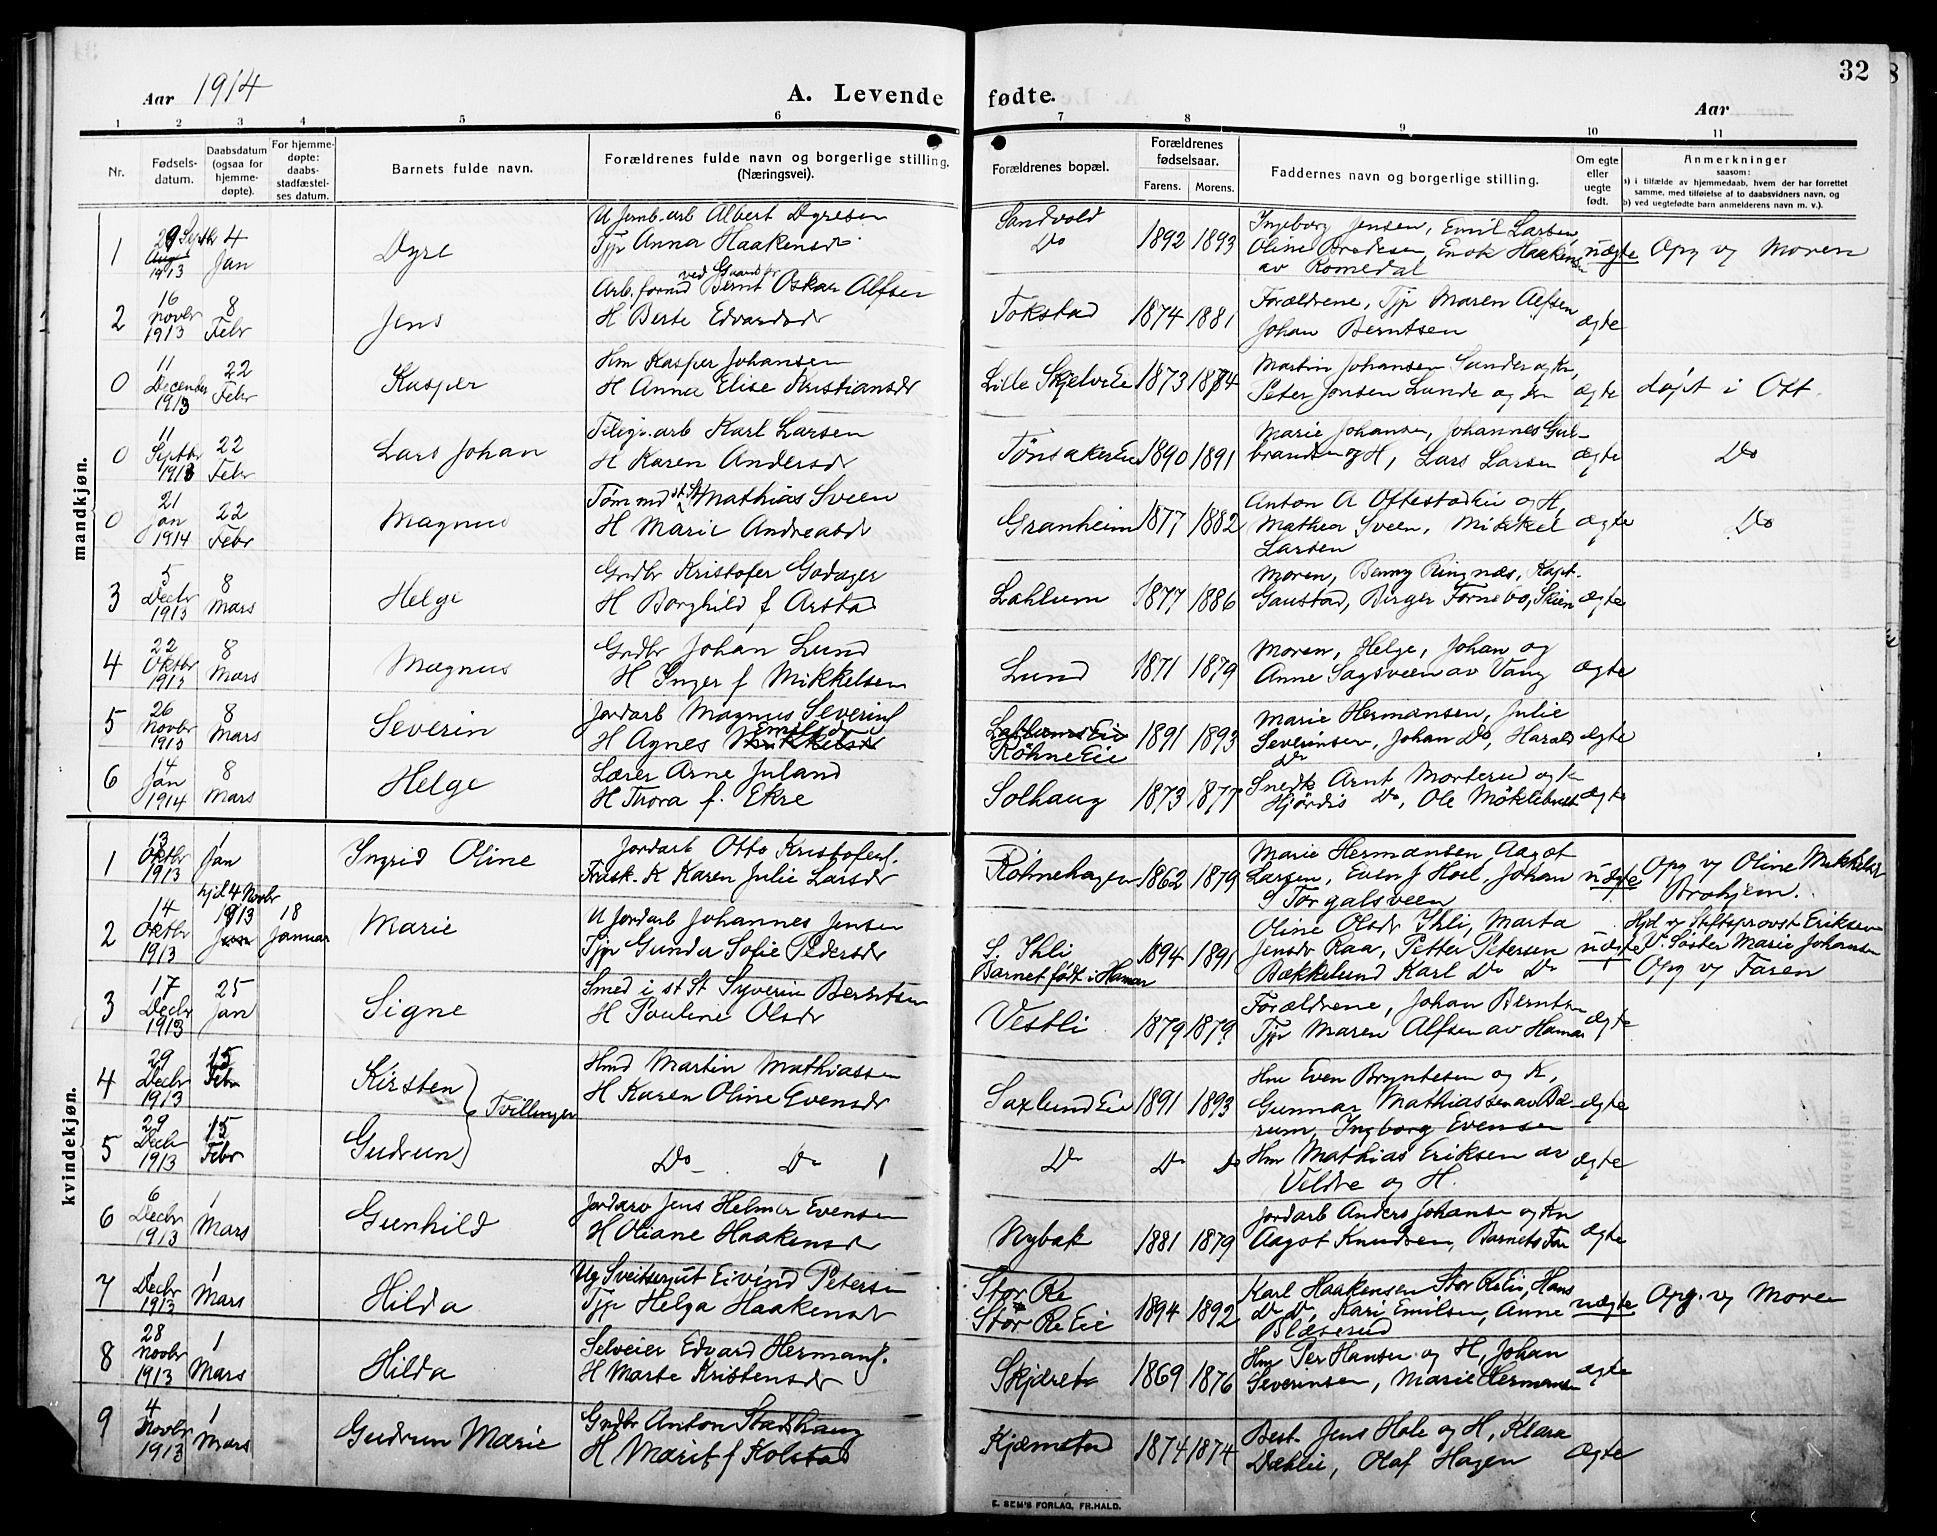 Aar 1914
A. Levende fødte.
Aar
32
1 2 3 4 5 6 7 8 9 10 11
Nr.
Fødsels-
datum.
Daabsdatum
(ogsaa for
hjemme-
døpte).
For hjemme-
døpte:
daabs-
stadfæstel-
ses datum.
Barnets fulde navn.
Forældrenes fulde navn og borgerlige stilling.
(Næringsvei).
Forældrenes bopæl.
Forældrenes
fødselsaar.
Farens. Morens.
Faddernes navn og borgerlige stilling.
Om egte
eller
uegte
født.
Anmerkninger
saasom:
a) i tilfælde av hjemmedaab, hvem der har forrettet
samme, med tilføielse av to daabsvidners navn, og
b) ved uegtefødte barn anmelderens navn m. v.).
mandkjøn.
1 29 Septbr 1913 4 Jan Dyre
U Jernb.arb Albert Dyresen
Tjp Anna Haakensdr
Sandvold
Do
1892 1893
Ingeborg Jensen, Emil Larsen,
Oline Enok Haakensen
av Romedal
uægte Opg v Moren
2 16 Novbr 1913 8 Febr Jens
Arb.formd ved Bernt Oskar Alfsen
H Berte Edvardsdr
Tokstad 1874 1881
Forældrene, Tjp Maren Alfsen
Johan Berntsen
ægte
0 11 December 1913 22 Febr Kasper
Hm Kasper Johansen
H Anna Elise Kristiansdr
Lille Skjelve Eie 1873 1874
Martin Johansen Sander og Kr,
Peter Jonsen Lunde og
ægte døpt i Ott.
0 11 Septbr 1913 22 Febr Lars Johan
Telegr.arb Karl Larsen
H Karen Andersdr
Tønsaker Eie 1890 1891
Marie Johansen, Johannes Gul-
brandsen og H, Lars Larsen
ægte Do
0 21 Jan 1914 22 Febr Magnus
Tømmd st St Mathias Sveen
H Marie Andreasdr
Granheim 1877 1882
Anton A Ottestadeie og H,
Mathea Sveen, Mikkel
Larsen
ægte Do
3 5 Decbr 1913 8 Mars Helge
Grdbr Kristofer Godager
H Borghild f Arstad
Lahlum 1877 1886
Moren, Benny Ringnæs, Kapt.
Gaustad, Birger Fornebo, Skien
ægte
4 22 Oktbr 1913 8 Mars Magnus
Grdbr Johan Lund
H Inger f Mikkelsen
Lund 1871 1879
Moren, Helge, Johan og
Anne Sagsveen av Vang
ægte
5 26 Novbr 1913 8 Mars Severin
Jordarb Magnus Severins
H Agnes Mikkelsdr
Lahlums Eie
Røhne Eie
1891 1893
Marie Hermansen, Julie
Severinsen, Johan Do, Harald
Do
ægte
6 14 Jan 1914 8 Mars Helge
Lærer Arne Juland
H Thora f. Ekre
Solhaug 1873 1877
Snedk Arnt Morterud og
Hjørdis Do, Ole Møklebust
ægte
kvindekjøn.
1 13 Oktbr 1913 1 Jan Ingrid Oline
Jordarb Otto Kristofers.
Frask. K Karen Julie Larsdr
Røhnehagen 1862 1879
Marie Hermansen Aagot
Larsen, Even J Hoel, Johan
S Torgalsveen
uægte Opg v Oline Mikkelsen
2 14 Oktbr 1913 hjd 4 Novbr 1913 Jan 18 Januar Marie
U Jordarb Johannes Jensen
Tjp Gunda Sofie Pedersdr
S. Ihli
Barnet født i Hamar
1894 1891
Oline Olsdr Ihli, Marta
Jensdr Raa, Petter Petersen
Bækkelund Karl Do Do
uægte Hjd v Stiftsprovst Eriksen
V. Søster Marie Johansen
Opg v Faren
3 17 Decbr 1913 25 Jan Signe
Smed i st St Syverin Berntsen
H Pauline Olsdr
Vestli 1879 1879
Forældrene, Johan Berntsn
Tjp Maren Alfsen av Hamar
ægte
4 29 Decbr 1913 15 Febr Kirsten
Tvillinger
Hmd Martin Mathiassen
H Karen Oline Evensdr
Saxlund Eie 1891 1893
Hm Even Bryntesen og K,
Gunnar Mathiassen av Bæ-
rum, Ingborg Evensen
ægte
5 29 Decbr 1913 15 Febr Gudrun
Do Do
Do Do Do
Hm Mathias Eriksen av
Veldre og H.
ægte
6 6 Decbr 1913 1 Mars Gunhild
Jordarb Jens Helmer Evensen
H Oliane Haakensdr
Nybak 1881 1879
Jordarb Anders Johansen og Kn
Aagot Knudsen, Barnets Far
ægte
7 1 Decbr 1913 1 Mars Hilda
Ug Sveitsergut Eivind Petersen
Tjp Helga Haakensdr
Stor Re
Stor Re Eie
1894 1892
Karl Haakensen Stor Re Eie, Hans
Do Do, Kari Emilsen, Anne
Blæserud
uægte Opg. v Moren
8 28 Novbr 1913 1 Mars Hilda
Selveier Edvard Hermans.
H Marte Kristensdr
Skjeret 1869 1876
Hm Per Hansen og H, Johan
Severinsen, Marie Hermansen
ægte
9 4 Novbr 1913 1 Mars Gudrun Marie
Grdbr Anton Stadshaug
H Marit f Kolstad
Kjæmstad 1874 1874
Best. Jens Hole og H, Klara
Dæhlie, Olaf Hagen
ægte
E. SEM'S FORLAG, FR.HALD.